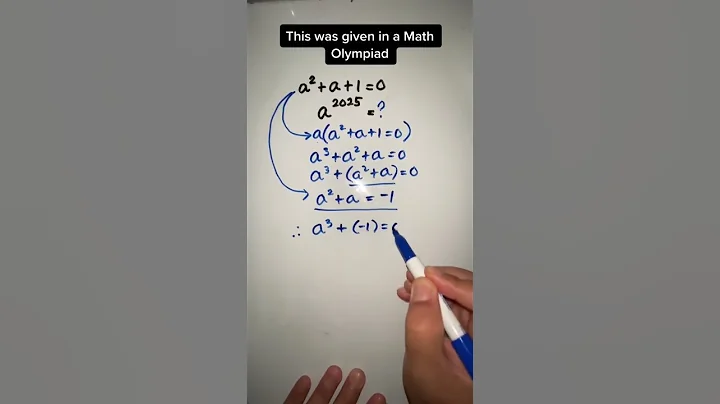 This was given in a Math
Olympiad
a² + a + 1 = 0
a²⁰²⁵ = ?
a(a² + a + 1 = 0)
a³ + a² + a = 0
a³ + (a² + a) = 0
a² + a = -1
∴ a³ + (-1) =